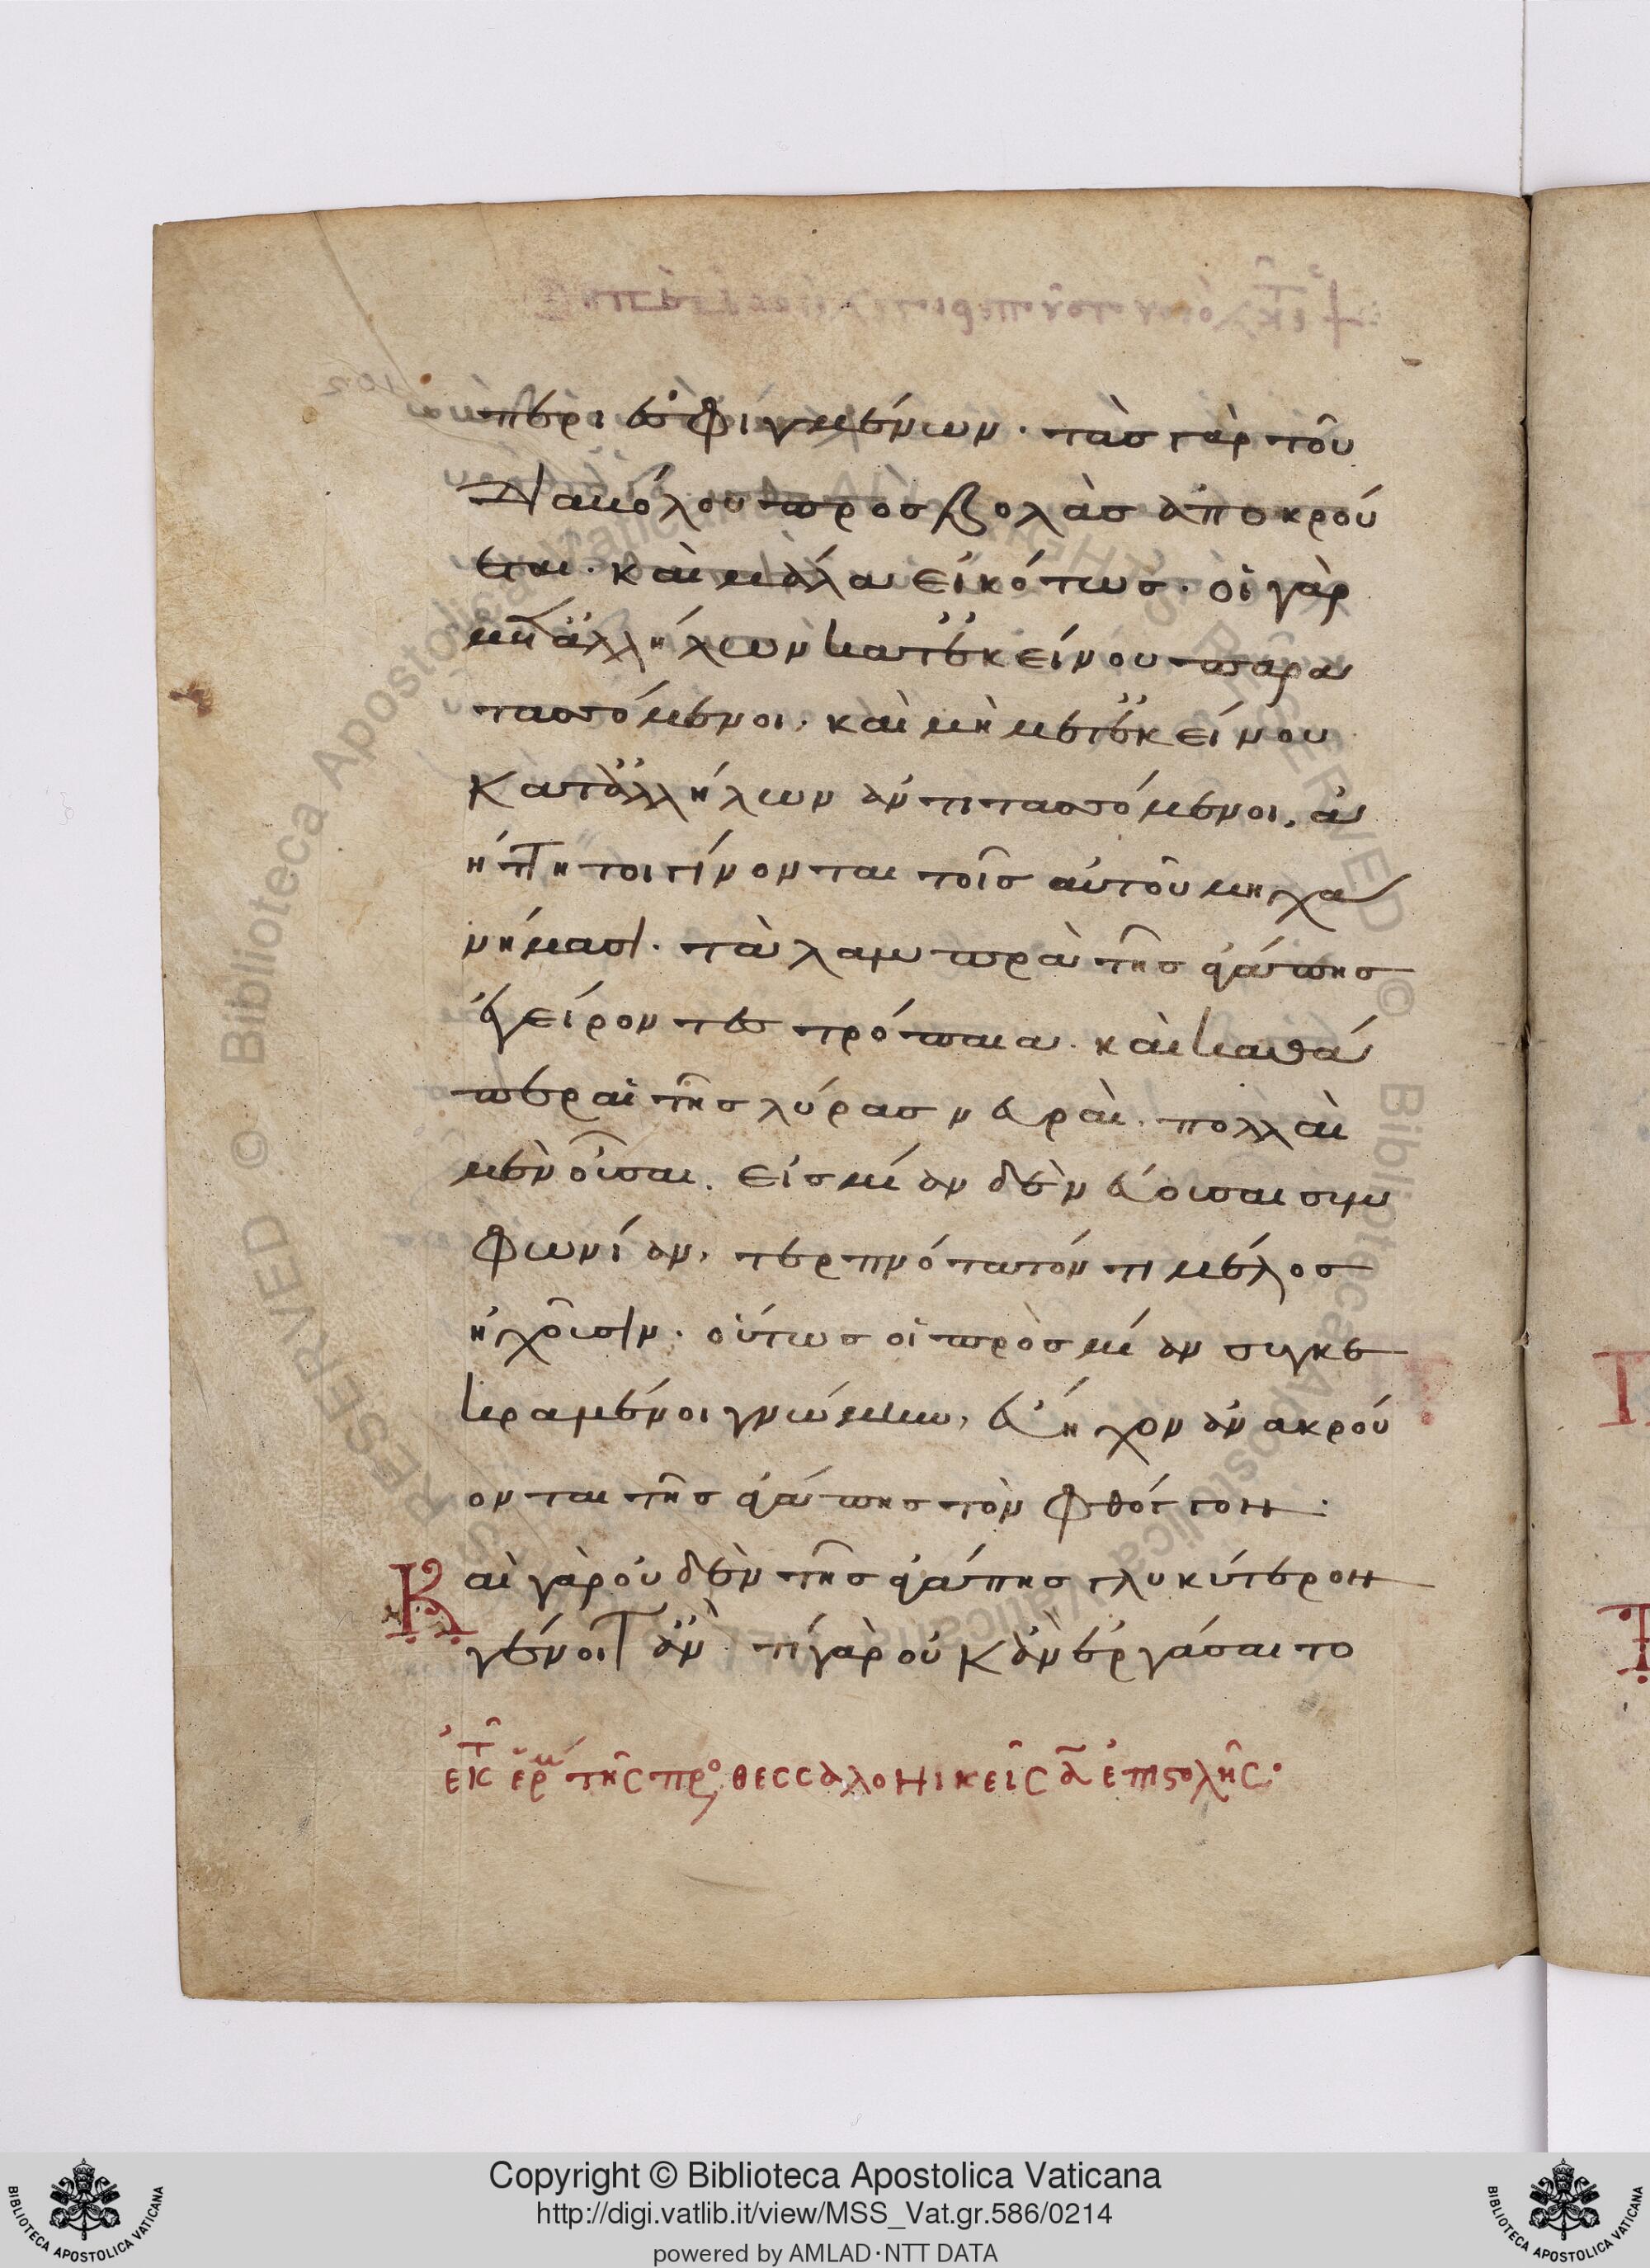 περιεσφιγμένων· τὰς γὰρ τοῦ
διαβόλου προσβολὰς ἀποκρού
εται· καὶ μάλα εἰκότως· οἱ γὰρ
μετ' ἀλλήλων κατ' ἐκείνου παρα
ταττόμενοι· καὶ μὴ μετ' ἐκείνου
κατ' ἀλλήλων ἀντιταττόμενοι, ἀ
ήττητοι γίνονται τοῖς αὐτοῦ μηχα
νήμασι· τὰ λαμπρὰ τῆς ἀγάπης
ἐγείροντες τρόπαια· καὶ καθά
περ αἱ τῆς λύρας νευραὶ· πολλαὶ
μὲν οὖσαι· εἰς μίαν δὲ νεύουσαι συμ
φωνίαν, τερπνότατόν τι μέλος
ἠχοῦσιν· οὕτως οἱ πρὸς μίαν συγκε
κραμένοι γνώμην, εὔηχον ἀνακρού
ονται τῆς ἀγάπης τὸν φθόγγον·
Καὶ γὰρ οὐδὲν τῆς ἀγάπης γλυκύτερον
γένοιτ' ἄν· τί γὰρ οὐκ ἂν ἐργάσαιτο
ἐκ τ ἑρμ τῆς πρ θεσσαλονικεῖς α ἐπιστολῆς·
Copyright © Biblioteca Apostolica Vaticana
http://digi.vatlib.it/view/MSS_Vat.gr.586/0214
powered by AMLAD·NTT DATA
BIBLIOTECA APOSTOLICA VATICANA
BIBLIOTECA APOSTOLICA VATICANA